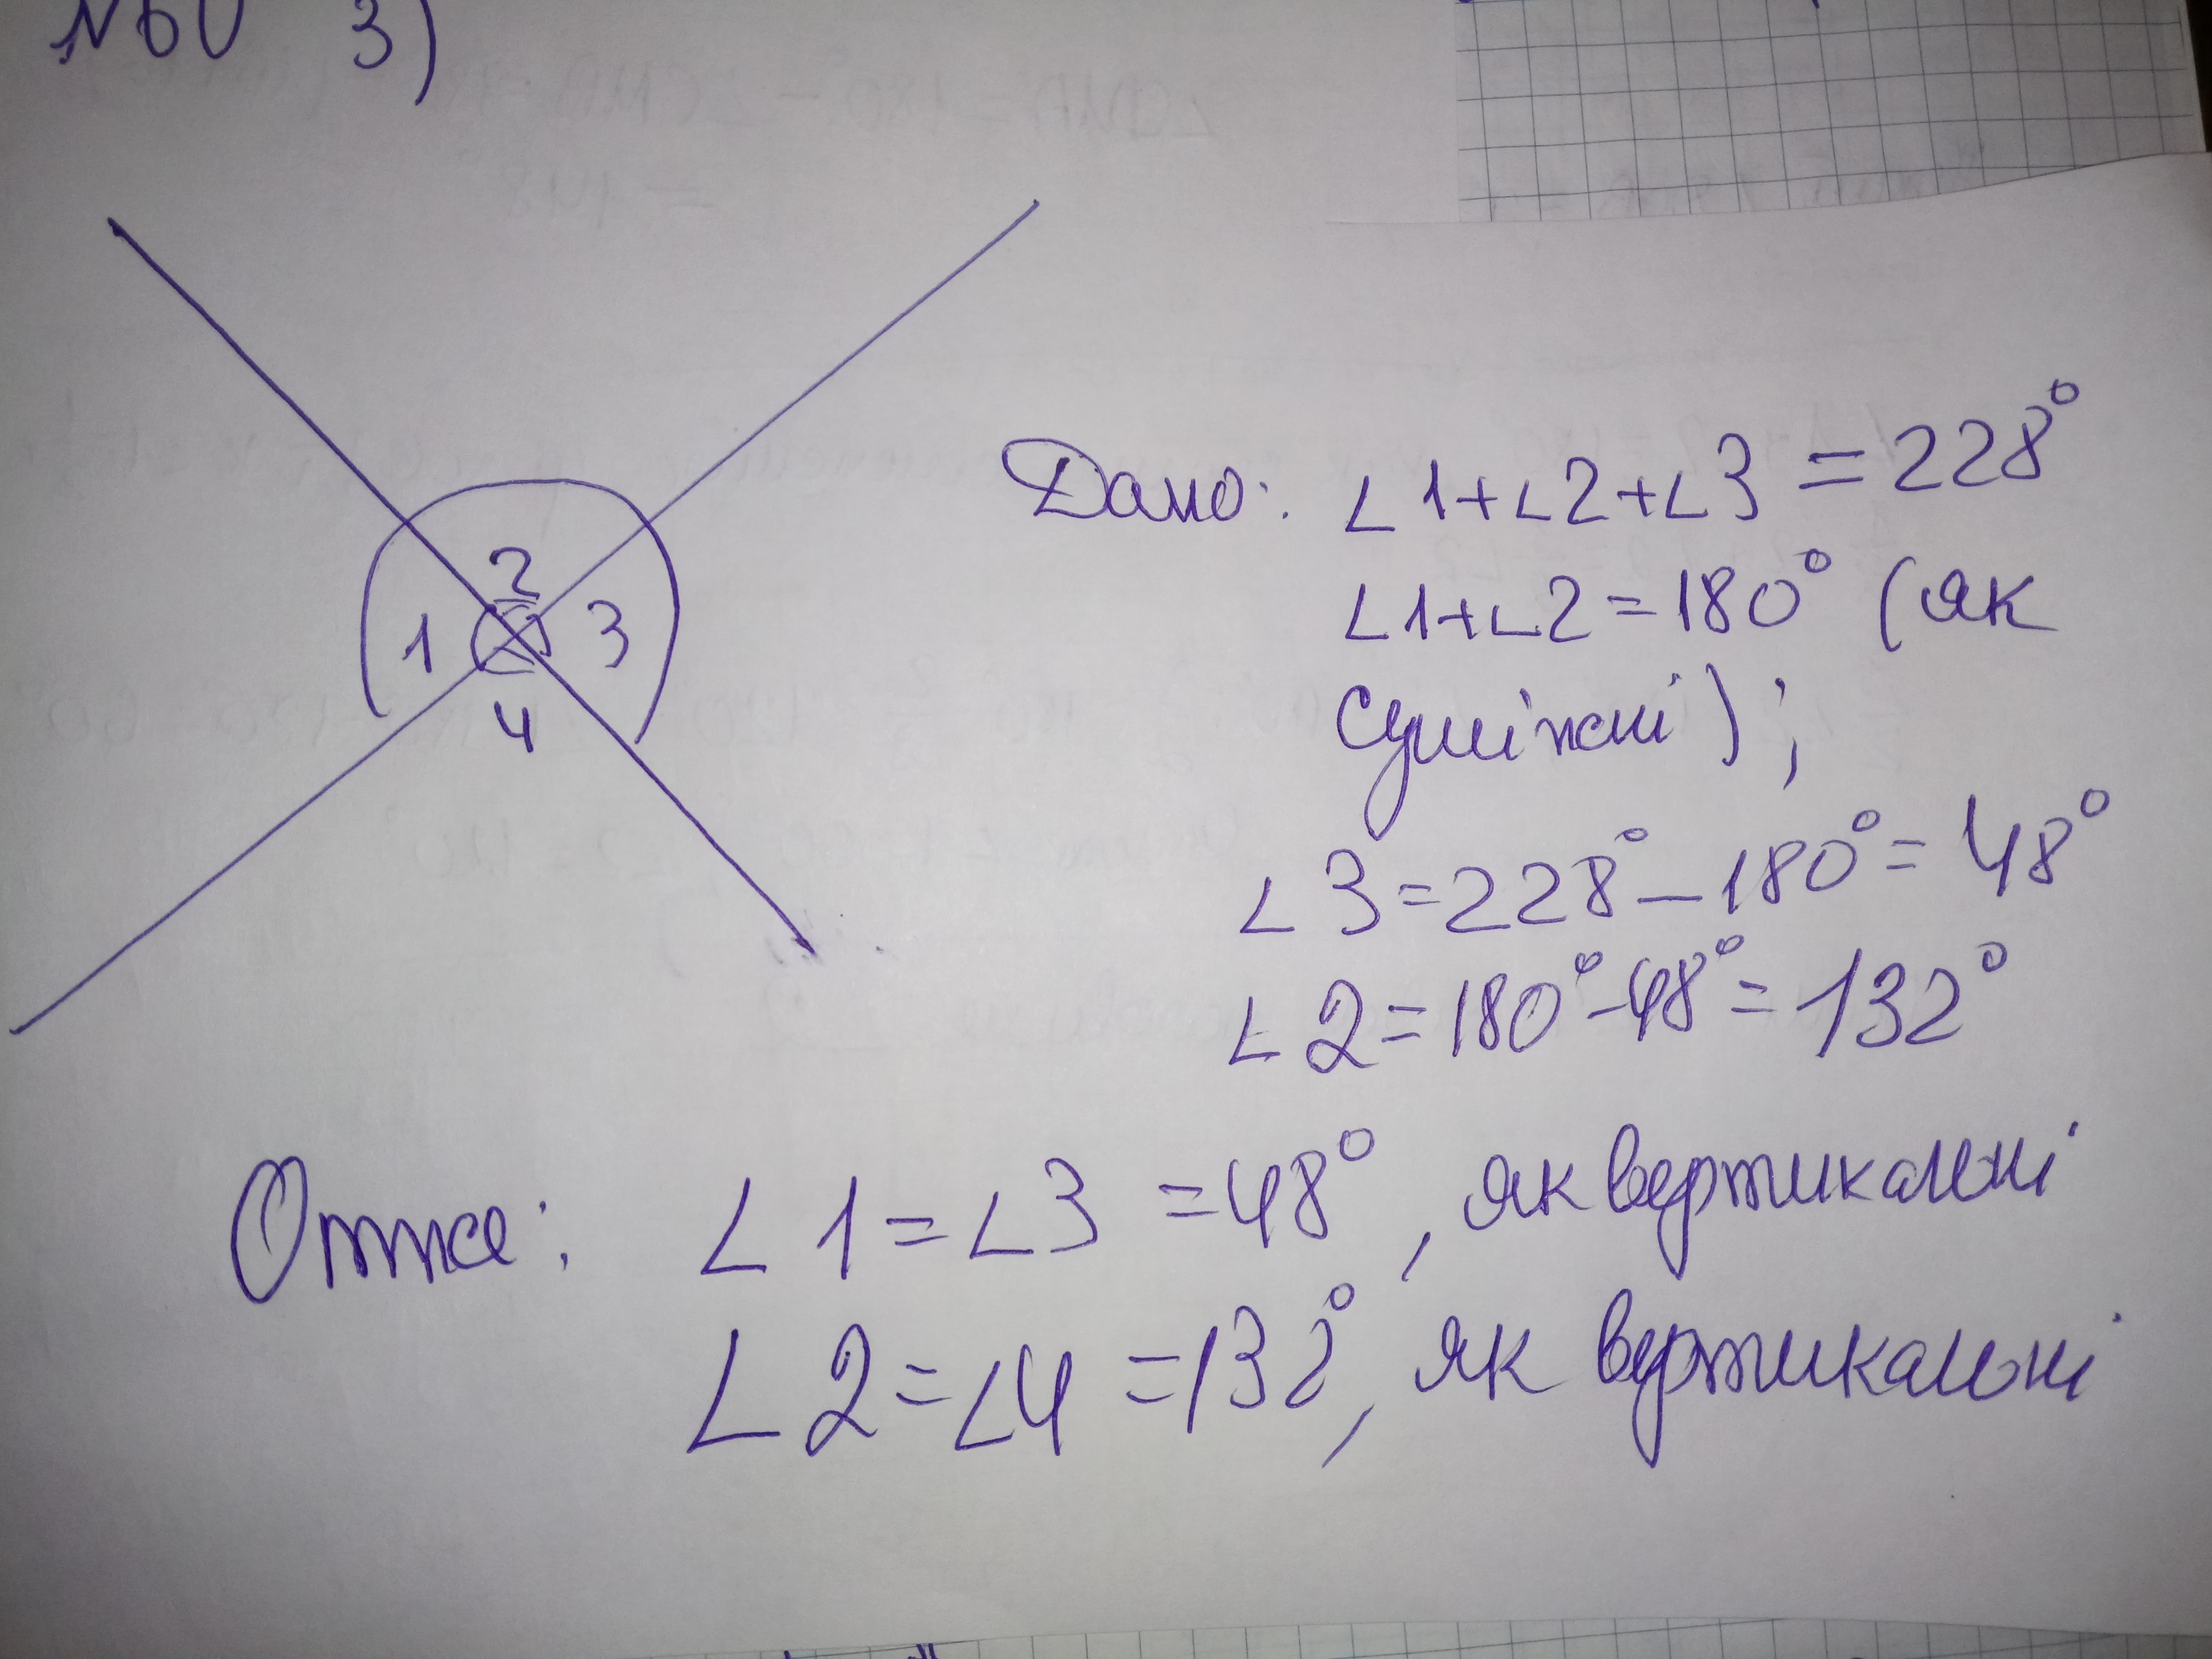 №60 3)
2
1 3
4
Дано: ∠1+∠2+∠3 = 228°
∠1+∠2=180° (як
суміжні);
∠3=228°-180°=48°
∠2=180°-48°=132°
Отже: ∠1=∠3 =48°, як вертикальні
∠2=∠4 =132°, як вертикальні